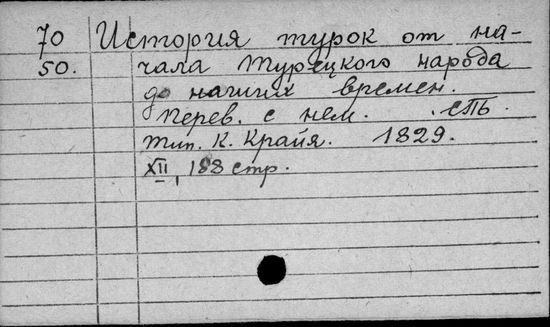 70 История турок от на-
50. чала Турецкого народа
до наших времен.
Перев. с нем. СПБ.
Тип. К. Крайя. 1829.
XII, 188 стр.